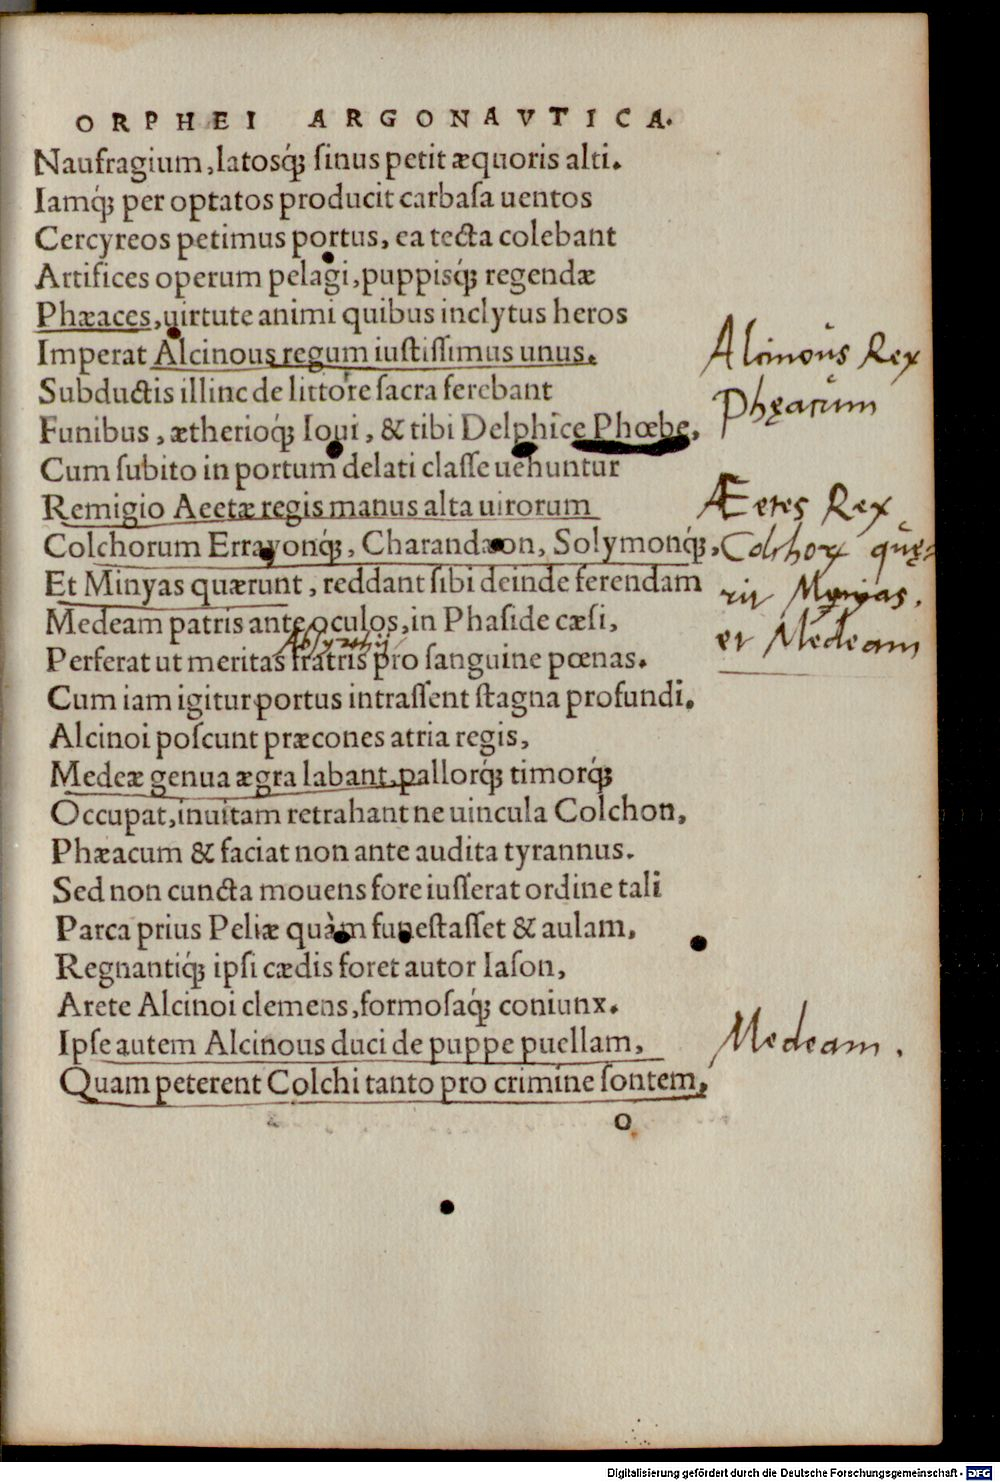 ORPHEI ARGONAVTICA.
Naufragium, latosq́; ſinus petit æquoris alti.
Iamq́; per optatos producit carbaſa uentos
Cercyreos petimus portus, ea tecta colebant
Artifices operum pelagi, puppisq́; regendæ
Phæaces, uirtute animi quibus inclytus heros
Imperat Alcinous regum iuſtiſſimus unus.
Alcinous Rex
Phęacum
Subductis illinc de littore ſacra ferebant
Funibus, ætherioq́; Ioui, & tibi Delphice Phœbe,
Cum ſubito in portum delati claſſe uehuntur
Remigio Aeetæ regis manus alta uirorum
Colchorum Errayonq́;, Charandæon, Solymonq́;,
Et Minyas quærunt, reddant ſibi deinde ferendam
Æetes Rex
Colchorꝝ quę-
rit Mynyas.
et Medeam
Medeam patris ante oculos, in Phaſide cæſi,
Abſyrthij
Perferat ut meritas fratris pro ſanguine pœnas.
Cum iam igitur portus intraſſent ſtagna profundi.
Alcinoi poſcunt præcones atria regis,
Medeæ genua ægra labant, pallorq́; timorq́;
Occupat, inuitam retrahant ne uincula Colchon,
Phæacum & faciat non ante audita tyrannus.
Sed non cuncta mouens fore iuſſerat ordine tali
Parca prius Peliæ quàm funeſtaſſet & aulam,
Regnantiq́; ipſi cædis foret autor Iaſon,
Arete Alcinoi clemens, formoſaq́; coniunx.
Ipſe autem Alcinous duci de puppe puellam,
Medeam.
Quam peterent Colchi tanto pro crimine ſontem,
O
Digitalisierung gefördert durch die Deutsche Forschungsgemeinschaft - DFG